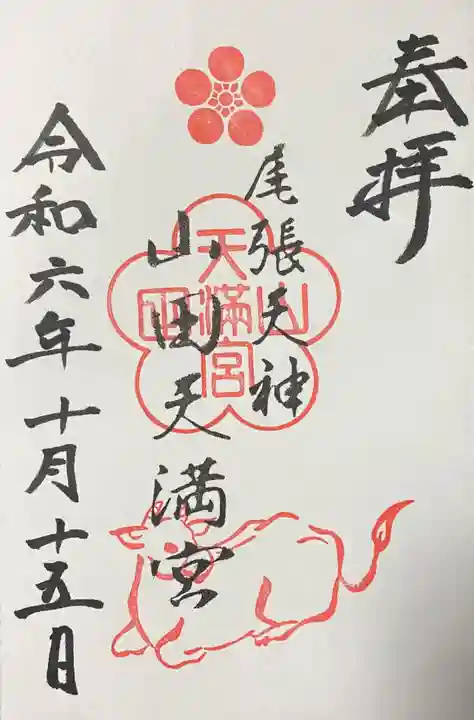 奉拝
尾張天神
山田天満宮
山田
天満宮
令和六年十月十五日